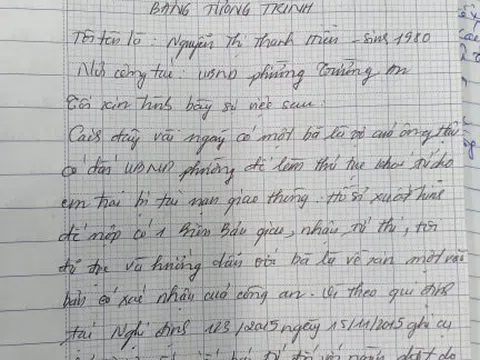 BẢNG TƯỜNG TRÌNH
Tôi tên là : Nguyễn Thị Thanh Hiền - Sinh 1980
Nơi công tác : UBND phường Trường An
Tôi xin trình bày sự việc sau :
Cách đây vài ngày có một bà là vợ của ông
có đến UBND phường để làm thủ tục khai tử do
em trai bị tai nạn giao thông. Hồ sơ xuất trình
để nộp có 1 Biên Bản giao, nhận tử thi, tôi
đã đọc và hướng dẫn với bà là về xin một văn
bản có xác nhận của công an. Vì theo qui định
tại Nghị định 123/2015 ngày 15/11/2015 ghi cụ